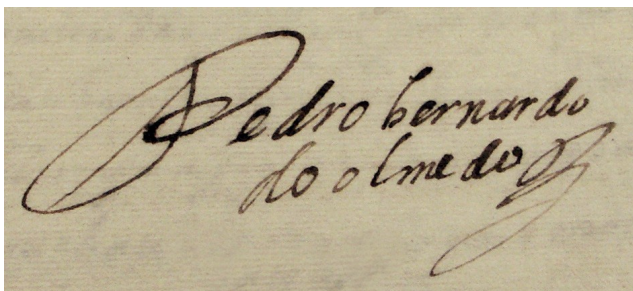 Pedro bernardo
do olmedo